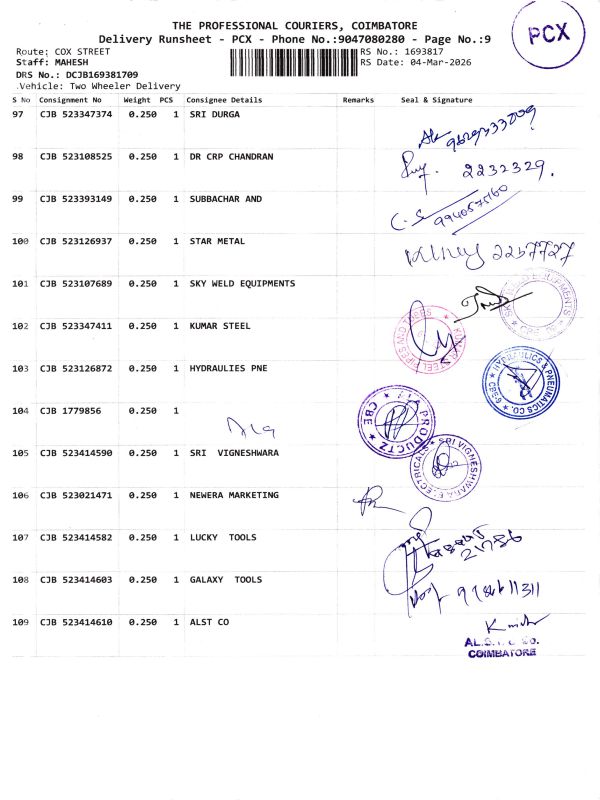 THE PROFESSIONAL COURIERS, COIMBATORE
Delivery Runsheet - PCX - Phone No.:9047080280 - Page No.:9
PCX
Route: COX STREET
RS No.: 1693817
Staff: MAHESH
RS Date: 04-Mar-2026
DRS No.: DCJB169381709
Vehicle: Two Wheeler Delivery
S No Consignment No Weight PCS Consignee Details Remarks Seal & Signature
97 CJB 523347374 0.250 1 SRI DURGA
98 CJB 523108525 0.250 1 DR CRP CHANDRAN
2232329.
99 CJB 523393149 0.250 1 SUBBACHAR AND
9940575160
100 CJB 523126937 0.250 1 STAR METAL
2257727
101 CJB 523107689 0.250 1 SKY WELD EQUIPMENTS
102 CJB 523347411 0.250 1 KUMAR STEEL
KUMAR STEEL PIPES AND TUBES
103 CJB 523126872 0.250 1 HYDRAULIES PNE
HYDRAULICS & PNEUMATICS CO.
104 CJB 1779856 0.250 1
PRODUCTZ CBE
105 CJB 523414590 0.250 1 SRI VIGNESHWARA
SRI VIGNESHWARA ELECTRICALS
106 CJB 523021471 0.250 1 NEWERA MARKETING
107 CJB 523414582 0.250 1 LUCKY TOOLS
21786
108 CJB 523414603 0.250 1 GALAXY TOOLS
109 CJB 523414610 0.250 1 ALST CO
COIMBATORE